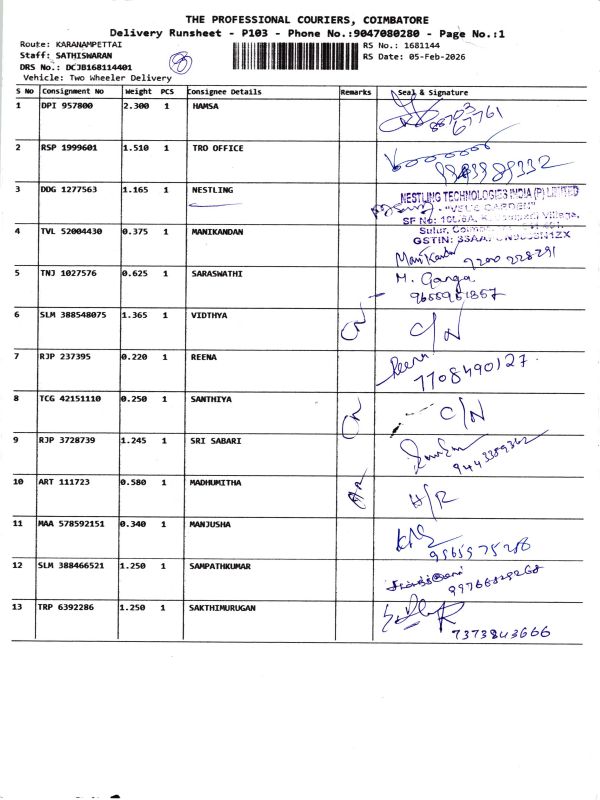 THE PROFESSIONAL COURIERS, COIMBATORE
Delivery Runsheet - P103 - Phone No.:9047080280 - Page No.:1
Route: KARANAMPETTAI
RS No.: 1681144
Staff: SATHISWARAN
RS Date: 05-Feb-2026
DRS No.: DCJB168114401
8
Vehicle: Two Wheeler Delivery
S No Consignment No Weight PCS Consignee Details Remarks Seal & Signature
1 DPI 957800 2.300 1 HAMSA
88703
67761
2 RSP 1999601 1.510 1 TRO OFFICE
3 DDG 1277563 1.165 1 NESTLING
NESTLING TECHNOLOGIES INDIA (P) LIMITED
"VELS GARDEN"
Village,
Sulur,
GSTIN:
4 TVL 52004430 0.375 1 MANIKANDAN Manikandan
7200 228291
5 TNJ 1027576 0.625 1 SARASWATHI M. Ganga
9655951857
6 SLM 388548075 1.365 1 VIDTHYA CN C/N
7 RJP 237395 0.220 1 REENA Reena
7708490127.
8 TCG 42151110 0.250 1 SANTHIYA CN C/N
9 RJP 3728739 1.245 1 SRI SABARI
9443389362
10 ART 111723 0.580 1 MADHUMITHA HR H/R
11 MAA 578592151 0.340 1 MANJUSHA
9565975288
12 SLM 388466521 1.250 1 SAMPATHKUMAR
13 TRP 6392286 1.250 1 SAKTHIMURUGAN
7373843666